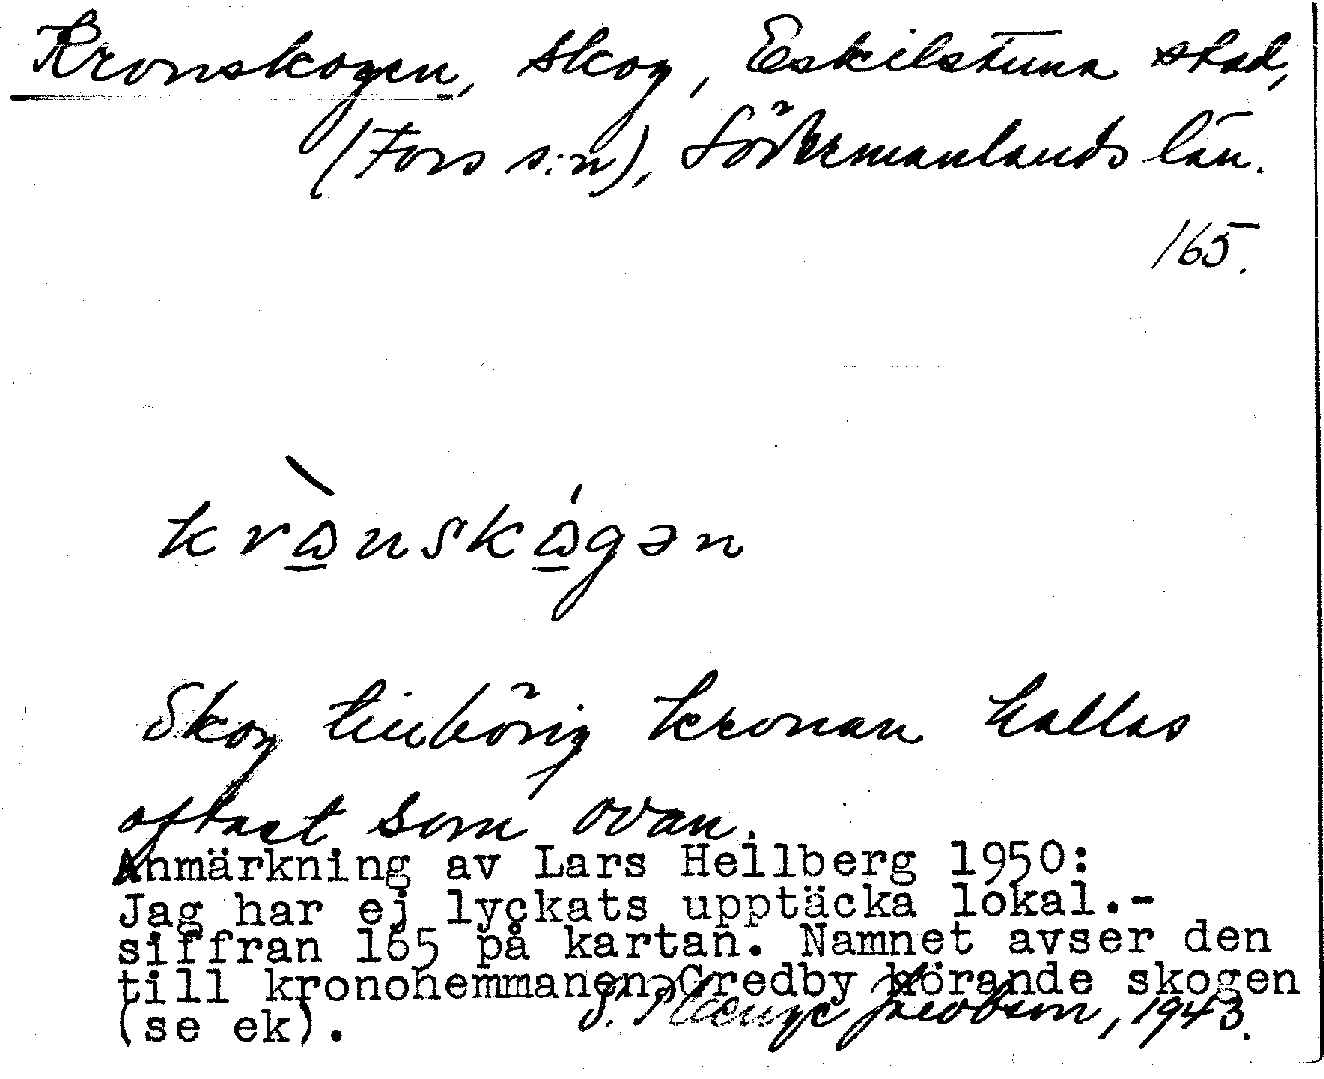 Kronskogen, skog, Eskilstuna stad,
(Fors s:n), Södermanlands län.
165.
krὼnskώgən
Skog tillhörig kronan kallas
oftast som ovan.
Anmärkning av Lars Hellberg 1950:
Jag har ej lyckats upptäcka lokal.-
siffran 165 på kartan. Namnet avser den
till kronohemmanen Gredby hörande skogen
(se ek).
Jacobson, 1943.